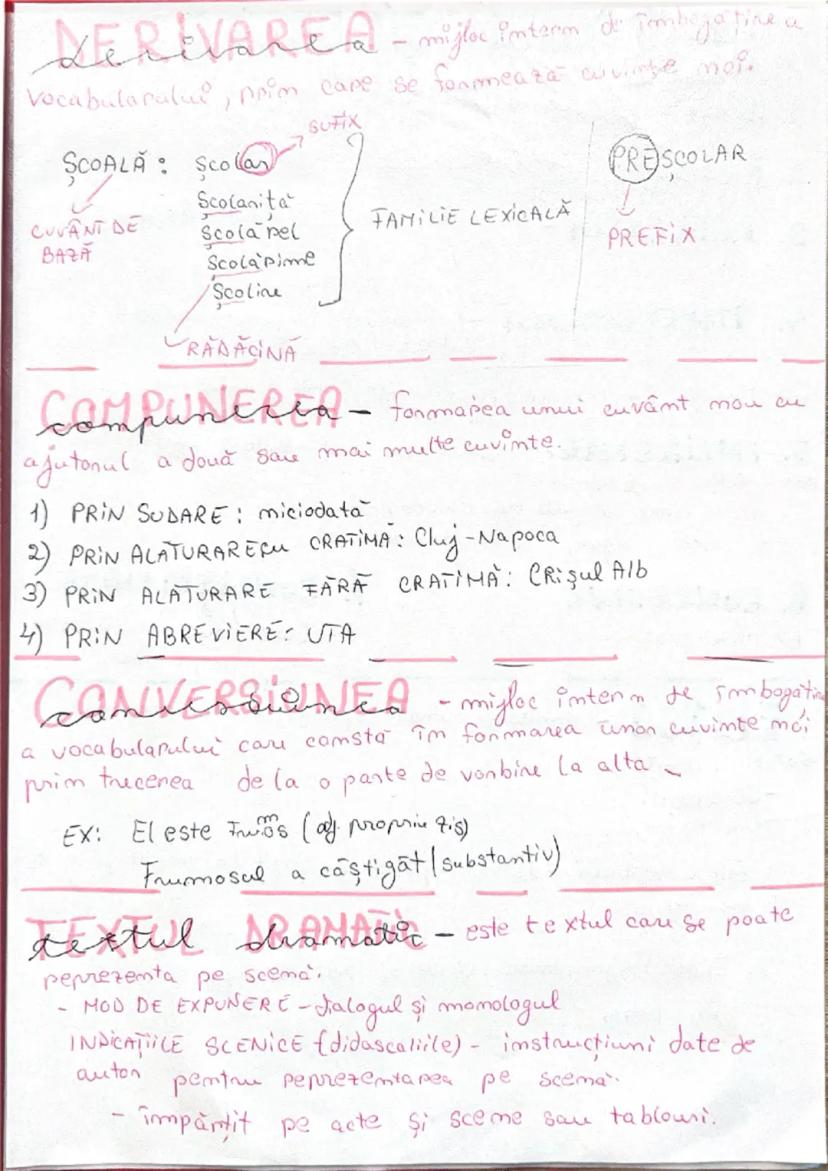 DERIVAREA - mijloc intern de îmbogățire a
derivarea
vocabularului, prin care se formează cuvinte noi.
SUFIX
ȘCOALĂ : Școlar
PREȘCOLAR
Școlăriță
CUVÂNT DE BAZĂ
Școlărel
FAMILIE LEXICALĂ
PREFIX
Școlărime
Școlire
RĂDĂCINĂ
COMPUNEREA - formarea unui cuvânt nou cu
compunerea
ajutorul a două sau mai multe cuvinte.
1) PRIN SUDARE : niciodată
2) PRIN ALATURARE CU CRATIMĂ : Cluj-Napoca
3) PRIN ALATURARE FĂRĂ CRATIMĂ : CRișul Alb
4) PRIN ABREVIERE : UTA
CONVERSIUNEA - mijloc intern de îmbogățire
conversiunea
a vocabularului care constă în formarea unor cuvinte noi
prin trecerea de la o parte de vorbire la alta
EX: El este frumos (adj. propriu zis)
Frumosul a câștigat (substantiv)
TEXTUL DRAMATIC - este textul care se poate
textul dramatic
reprezenta pe scenă.
- MOD DE EXPUNERE - dialogul și monologul
INDICAȚIILE SCENICE (didascaliile) - instrucțiuni date de
autor pentru reprezentarea pe scenă.
- împărțit pe acte și scene sau tablouri.